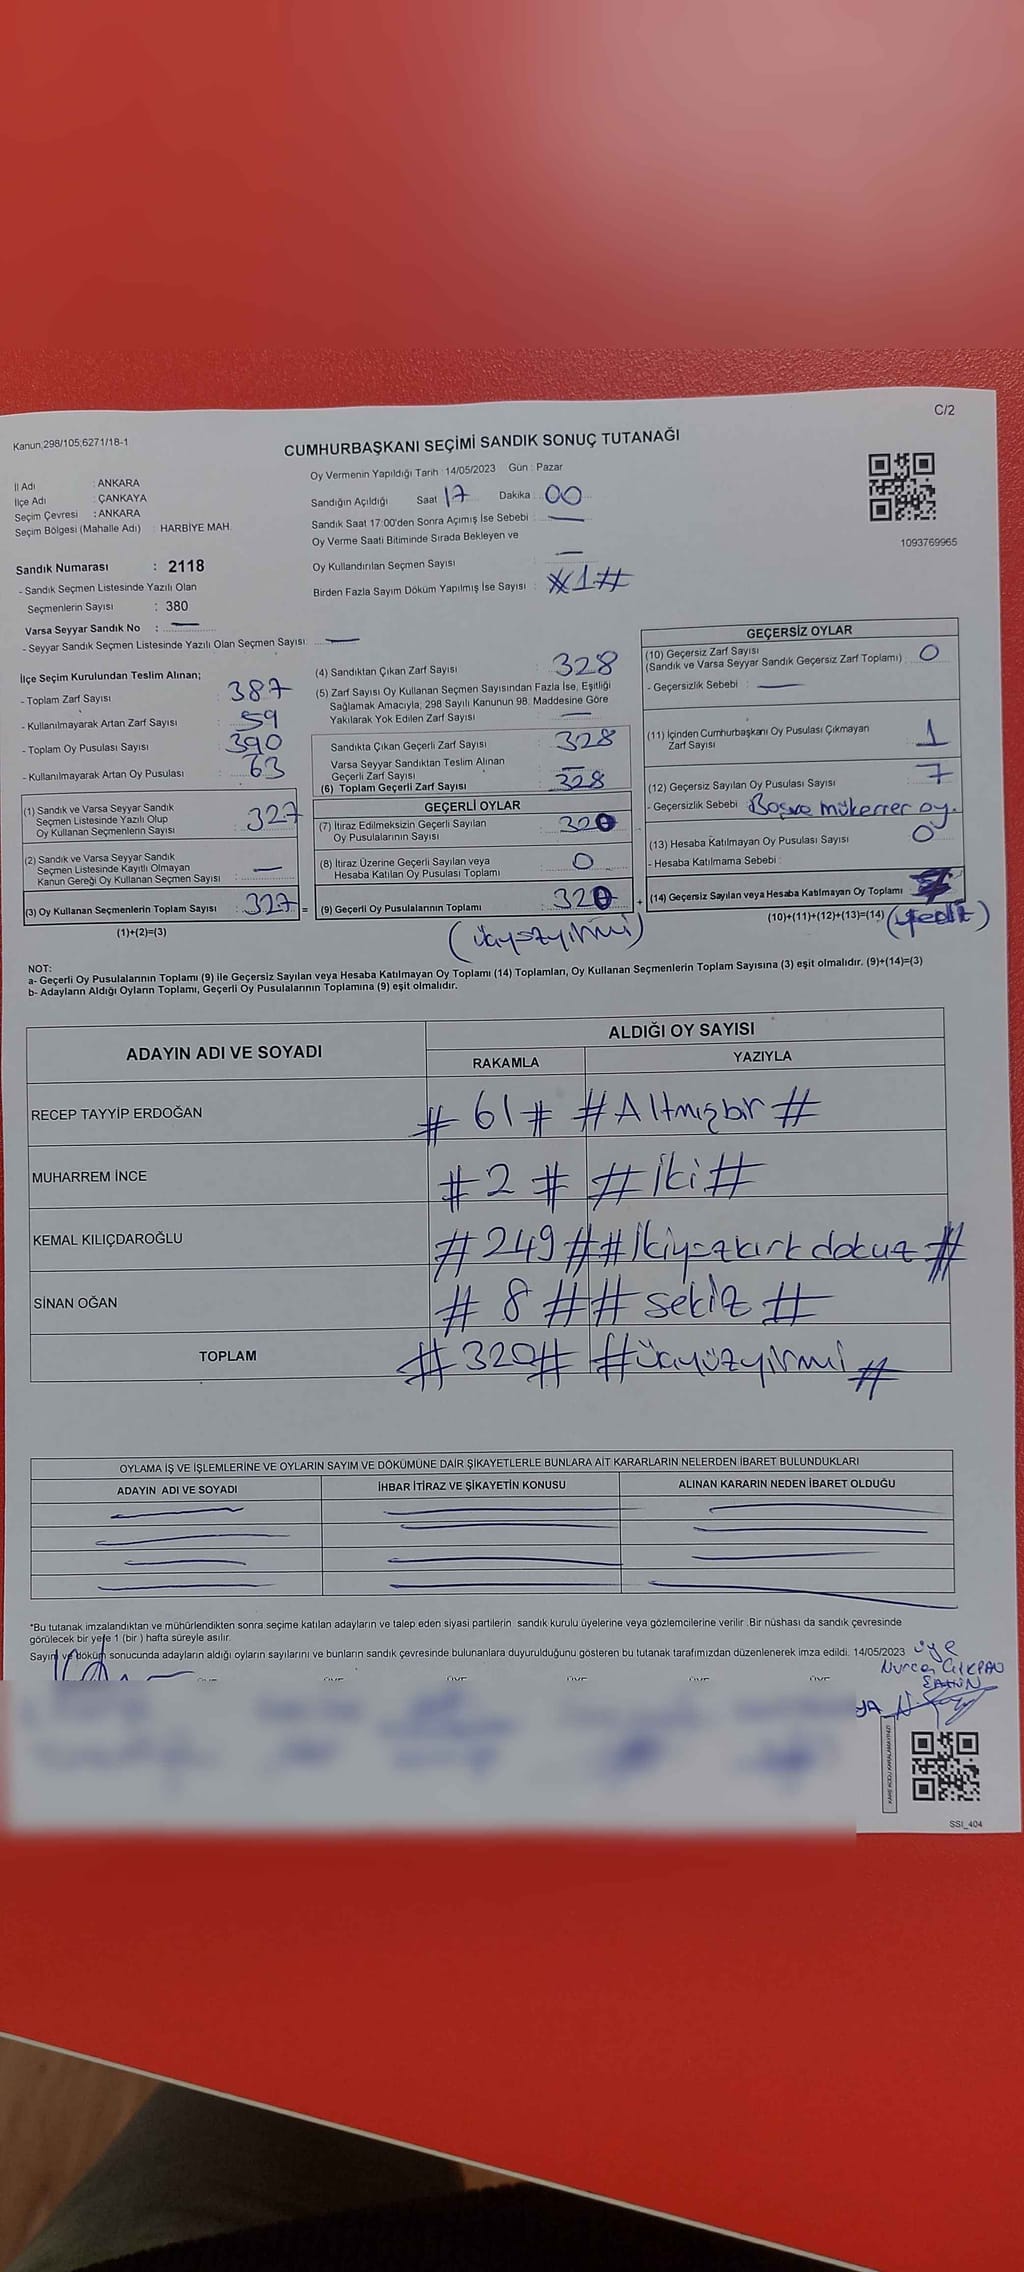 C/2
Kanun;298/105;6271/18-1
CUMHURBAŞKANI SEÇİMİ SANDIK SONUÇ TUTANAĞI
İl Adı : ANKARA
İlçe Adı : ÇANKAYA
Seçim Çevresi : ANKARA
Seçim Bölgesi (Mahalle Adı) : HARBİYE MAH.
Sandık Numarası : 2118
- Sandık Seçmen Listesinde Yazılı Olan
Seçmenlerin Sayısı : 380
Varsa Seyyar Sandık No :
- Seyyar Sandık Seçmen Listesinde Yazılı Olan Seçmen Sayısı:
Oy Vermenin Yapıldığı Tarih : 14/05/2023 Gün : Pazar
Sandığın Açıldığı Saat 17 Dakika 00
Sandık Saat 17:00'den Sonra Açımış İse Sebebi :
Oy Verme Saati Bitiminde Sırada Bekleyen ve
Oy Kullandırılan Seçmen Sayısı
Birden Fazla Sayım Döküm Yapılmış İse Sayısı : 1#
1093769965
İlçe Seçim Kurulundan Teslim Alınan;
- Toplam Zarf Sayısı : 387
- Kullanılmayarak Artan Zarf Sayısı : 59
- Toplam Oy Pusulası Sayısı : 390
- Kullanılmayarak Artan Oy Pusulası : 63
(1) Sandık ve Varsa Seyyar Sandık
Seçmen Listesinde Yazılı Olup
Oy Kullanan Seçmenlerin Sayısı : 327
(2) Sandık ve Varsa Seyyar Sandık
Seçmen Listesinde Kayıtlı Olmayan
Kanun Gereği Oy Kullanan Seçmen Sayısı :
(3) Oy Kullanan Seçmenlerin Toplam Sayısı : 327 =
(1)+(2)=(3)
(4) Sandıktan Çıkan Zarf Sayısı : 328
(5) Zarf Sayısı Oy Kullanan Seçmen Sayısından Fazla İse, Eşitliği
Sağlamak Amacıyla; 298 Sayılı Kanunun 98. Maddesine Göre
Yakılarak Yok Edilen Zarf Sayısı :
Sandıkta Çıkan Geçerli Zarf Sayısı : 328
Varsa Seyyar Sandıktan Teslim Alınan
Geçerli Zarf Sayısı :
(6) Toplam Geçerli Zarf Sayısı : 328
GEÇERLİ OYLAR
(7) İtiraz Edilmeksizin Geçerli Sayılan
Oy Pusulalarının Sayısı : 320
(8) İtiraz Üzerine Geçerli Sayılan veya
Hesaba Katılan Oy Pusulası Toplamı : 0
(9) Geçerli Oy Pusulalarının Toplamı : 320 +
(üçyüzyirmi)
GEÇERSİZ OYLAR
(10) Geçersiz Zarf Sayısı
(Sandık ve Varsa Seyyar Sandık Geçersiz Zarf Toplamı) : 0
- Geçersizlik Sebebi :
(11) İçinden Cumhurbaşkanı Oy Pusulası Çıkmayan
Zarf Sayısı : 1
(12) Geçersiz Sayılan Oy Pusulası Sayısı : 7
- Geçersizlik Sebebi : Boş ve mükerrer oy.
(13) Hesaba Katılmayan Oy Pusulası Sayısı : 0
- Hesaba Katılmama Sebebi :
(14) Geçersiz Sayılan veya Hesaba Katılmayan Oy Toplamı : 7
(10)+(11)+(12)+(13)=(14) (yedi)
NOT:
a- Geçerli Oy Pusulalarının Toplamı (9) ile Geçersiz Sayılan veya Hesaba Katılmayan Oy Toplamı (14) Toplamları, Oy Kullanan Seçmenlerin Toplam Sayısına (3) eşit olmalıdır. (9)+(14)=(3)
b- Adayların Aldığı Oyların Toplamı, Geçerli Oy Pusulalarının Toplamına (9) eşit olmalıdır.
ADAYIN ADI VE SOYADI
ALDIĞI OY SAYISI
RAKAMLA YAZIYLA
RECEP TAYYİP ERDOĞAN # 61 # # Altmışbir #
MUHARREM İNCE # 2 # # İki #
KEMAL KILIÇDAROĞLU # 249 # # İkiyüzkırk dokuz #
SİNAN OĞAN # 8 # # sekiz #
TOPLAM # 320 # # üçyüzyirmi #
OYLAMA İŞ VE İŞLEMLERİNE VE OYLARIN SAYIM VE DÖKÜMÜNE DAİR ŞİKAYETLERLE BUNLARA AİT KARARLARIN NELERDEN İBARET BULUNDUKLARI
ADAYIN ADI VE SOYADI İHBAR İTİRAZ VE ŞİKAYETİN KONUSU ALINAN KARARIN NEDEN İBARET OLDUĞU
*Bu tutanak imzalandıktan ve mühürlendikten sonra seçime katılan adayların ve talep eden siyasi partilerin sandık kurulu üyelerine veya gözlemcilerine verilir. Bir nüshası da sandık çevresinde
görülecek bir yere 1 (bir) hafta süreyle asılır.
Sayım ve döküm sonucunda adayların aldığı oyların sayılarını ve bunların sandık çevresinde bulunanlara duyurulduğunu gösteren bu tutanak tarafımızdan düzenlenerek imza edildi. 14/05/2023
üye
Nurcan
ŞAHİN
SSI_404